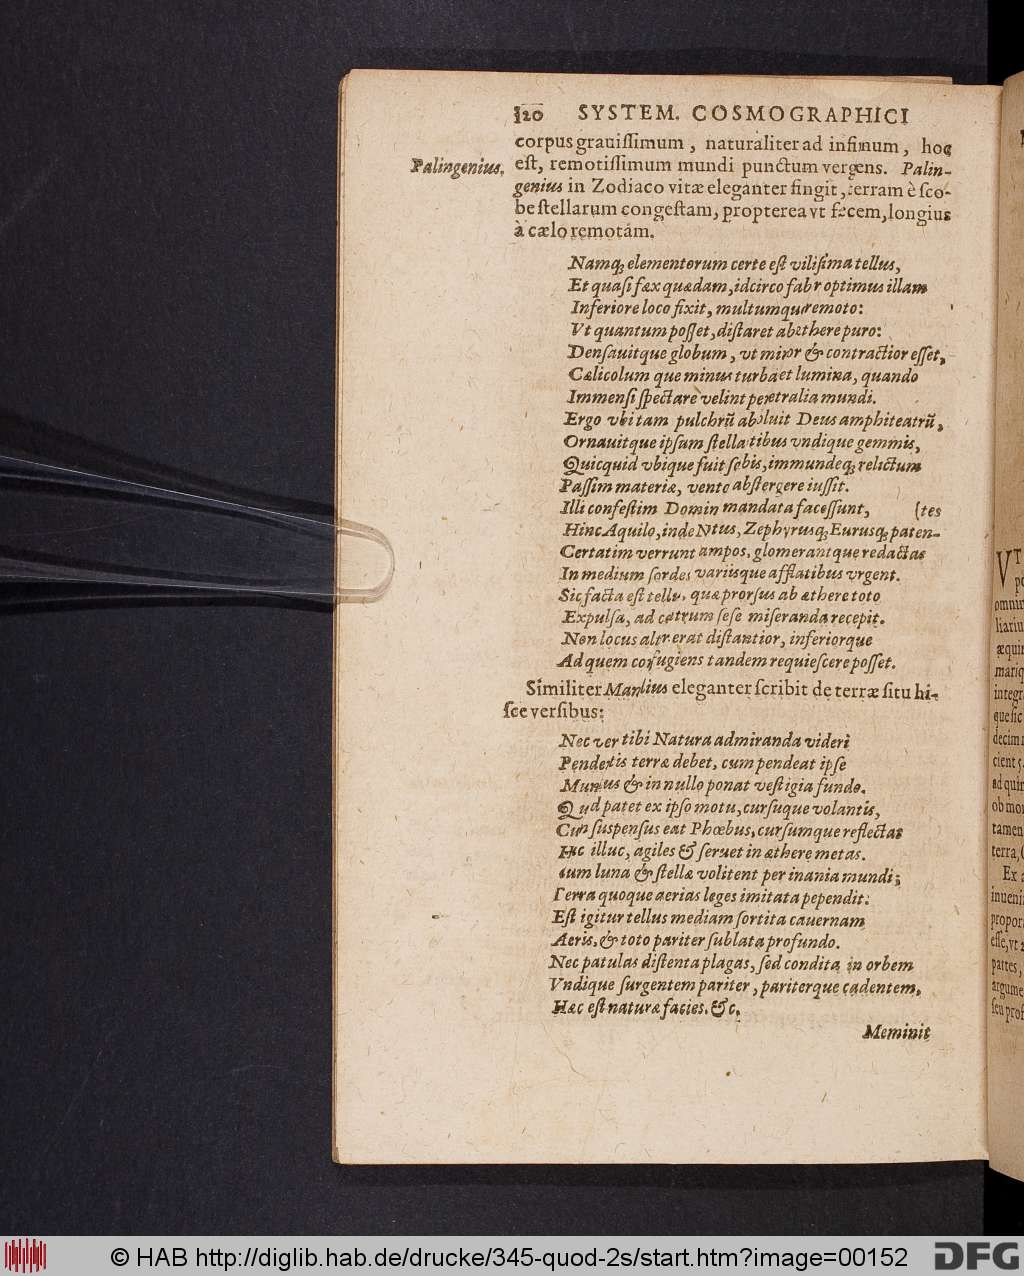 120 SYSTEM. COSMOGRAPHICI
corpus grauiſſimum, naturaliter ad infimum, hoc
Palingenius.
eſt, remotiſſimum mundi punctum vergens. Palin-
genius in Zodiaco vitæ eleganter fingit, terram è ſco-
be ſtellarum congeſtam, propterea vt fæcem, longius
à cælo remotam.
Namq; elementorum certe eſt viliſima tellus,
Et quaſi fæx quædam, idcirco fabr optimus illam
Inferiore loco fixit, multumqu remoto:
Vt quantum poſſet, diſtaret ab æthere puro:
Denſauitque globum, vt minor & contractior eſſet,
Cælicolum que minus turbaret lumina, quando
Immenſi ſpectare velint penetralia mundi.
Ergo vbi tam pulchrū abſoluit Deus amphiteatrū,
Ornauitque ipſum ſtellantibus vndique gemmis,
Quicquid vbique fuit ſcobis, immundeq; relictum
Paſſim materiæ, vento abſtergere iuſſit.
Illi confeſtim Domin mandata faceſſunt, (tes
Hinc Aquilo, inde Notus, Zephyrusq; Eurusq; paten-
Certatim verrunt campos, glomerantque redactas
In medium ſordes variisque afflatibus vrgent.
Sic facta eſt tellus, quæ prorſus ab æthere toto
Expulſa, ad centrum ſeſe miſeranda recepit.
Non locus alter erat diſtantior, inferiorque
Ad quem confugiens tandem requieſcere poſſet.
Similiter Manilius eleganter ſcribit de terræ ſitu hi-
ſce verſibus:
Nec vero tibi Natura admiranda videri
Pendentis terræ debet, cum pendeat ipſe
Mundus & in nullo ponat veſtigia fundo.
Quod patet ex ipſo motu, curſuque volantis,
Cum ſuſpenſus eat Phœbus, curſumque reflectat
Huc illuc, agiles & ſeruet in æthere metas.
Cum luna & ſtellæ volitent per inania mundi;
Terra quoque aerias leges imitata pependit:
Eſt igitur tellus mediam ſortita cauernam
Aeris, & toto pariter ſublata profundo.
Nec patulas diſtenta plagas, ſed condita in orbem
Vndique ſurgentem pariter, pariterque cadentem,
Hæc eſt naturæ facies. &c.
Meminit
© HAB http://diglib.hab.de/drucke/345-quod-2s/start.htm?image=00152
DFG